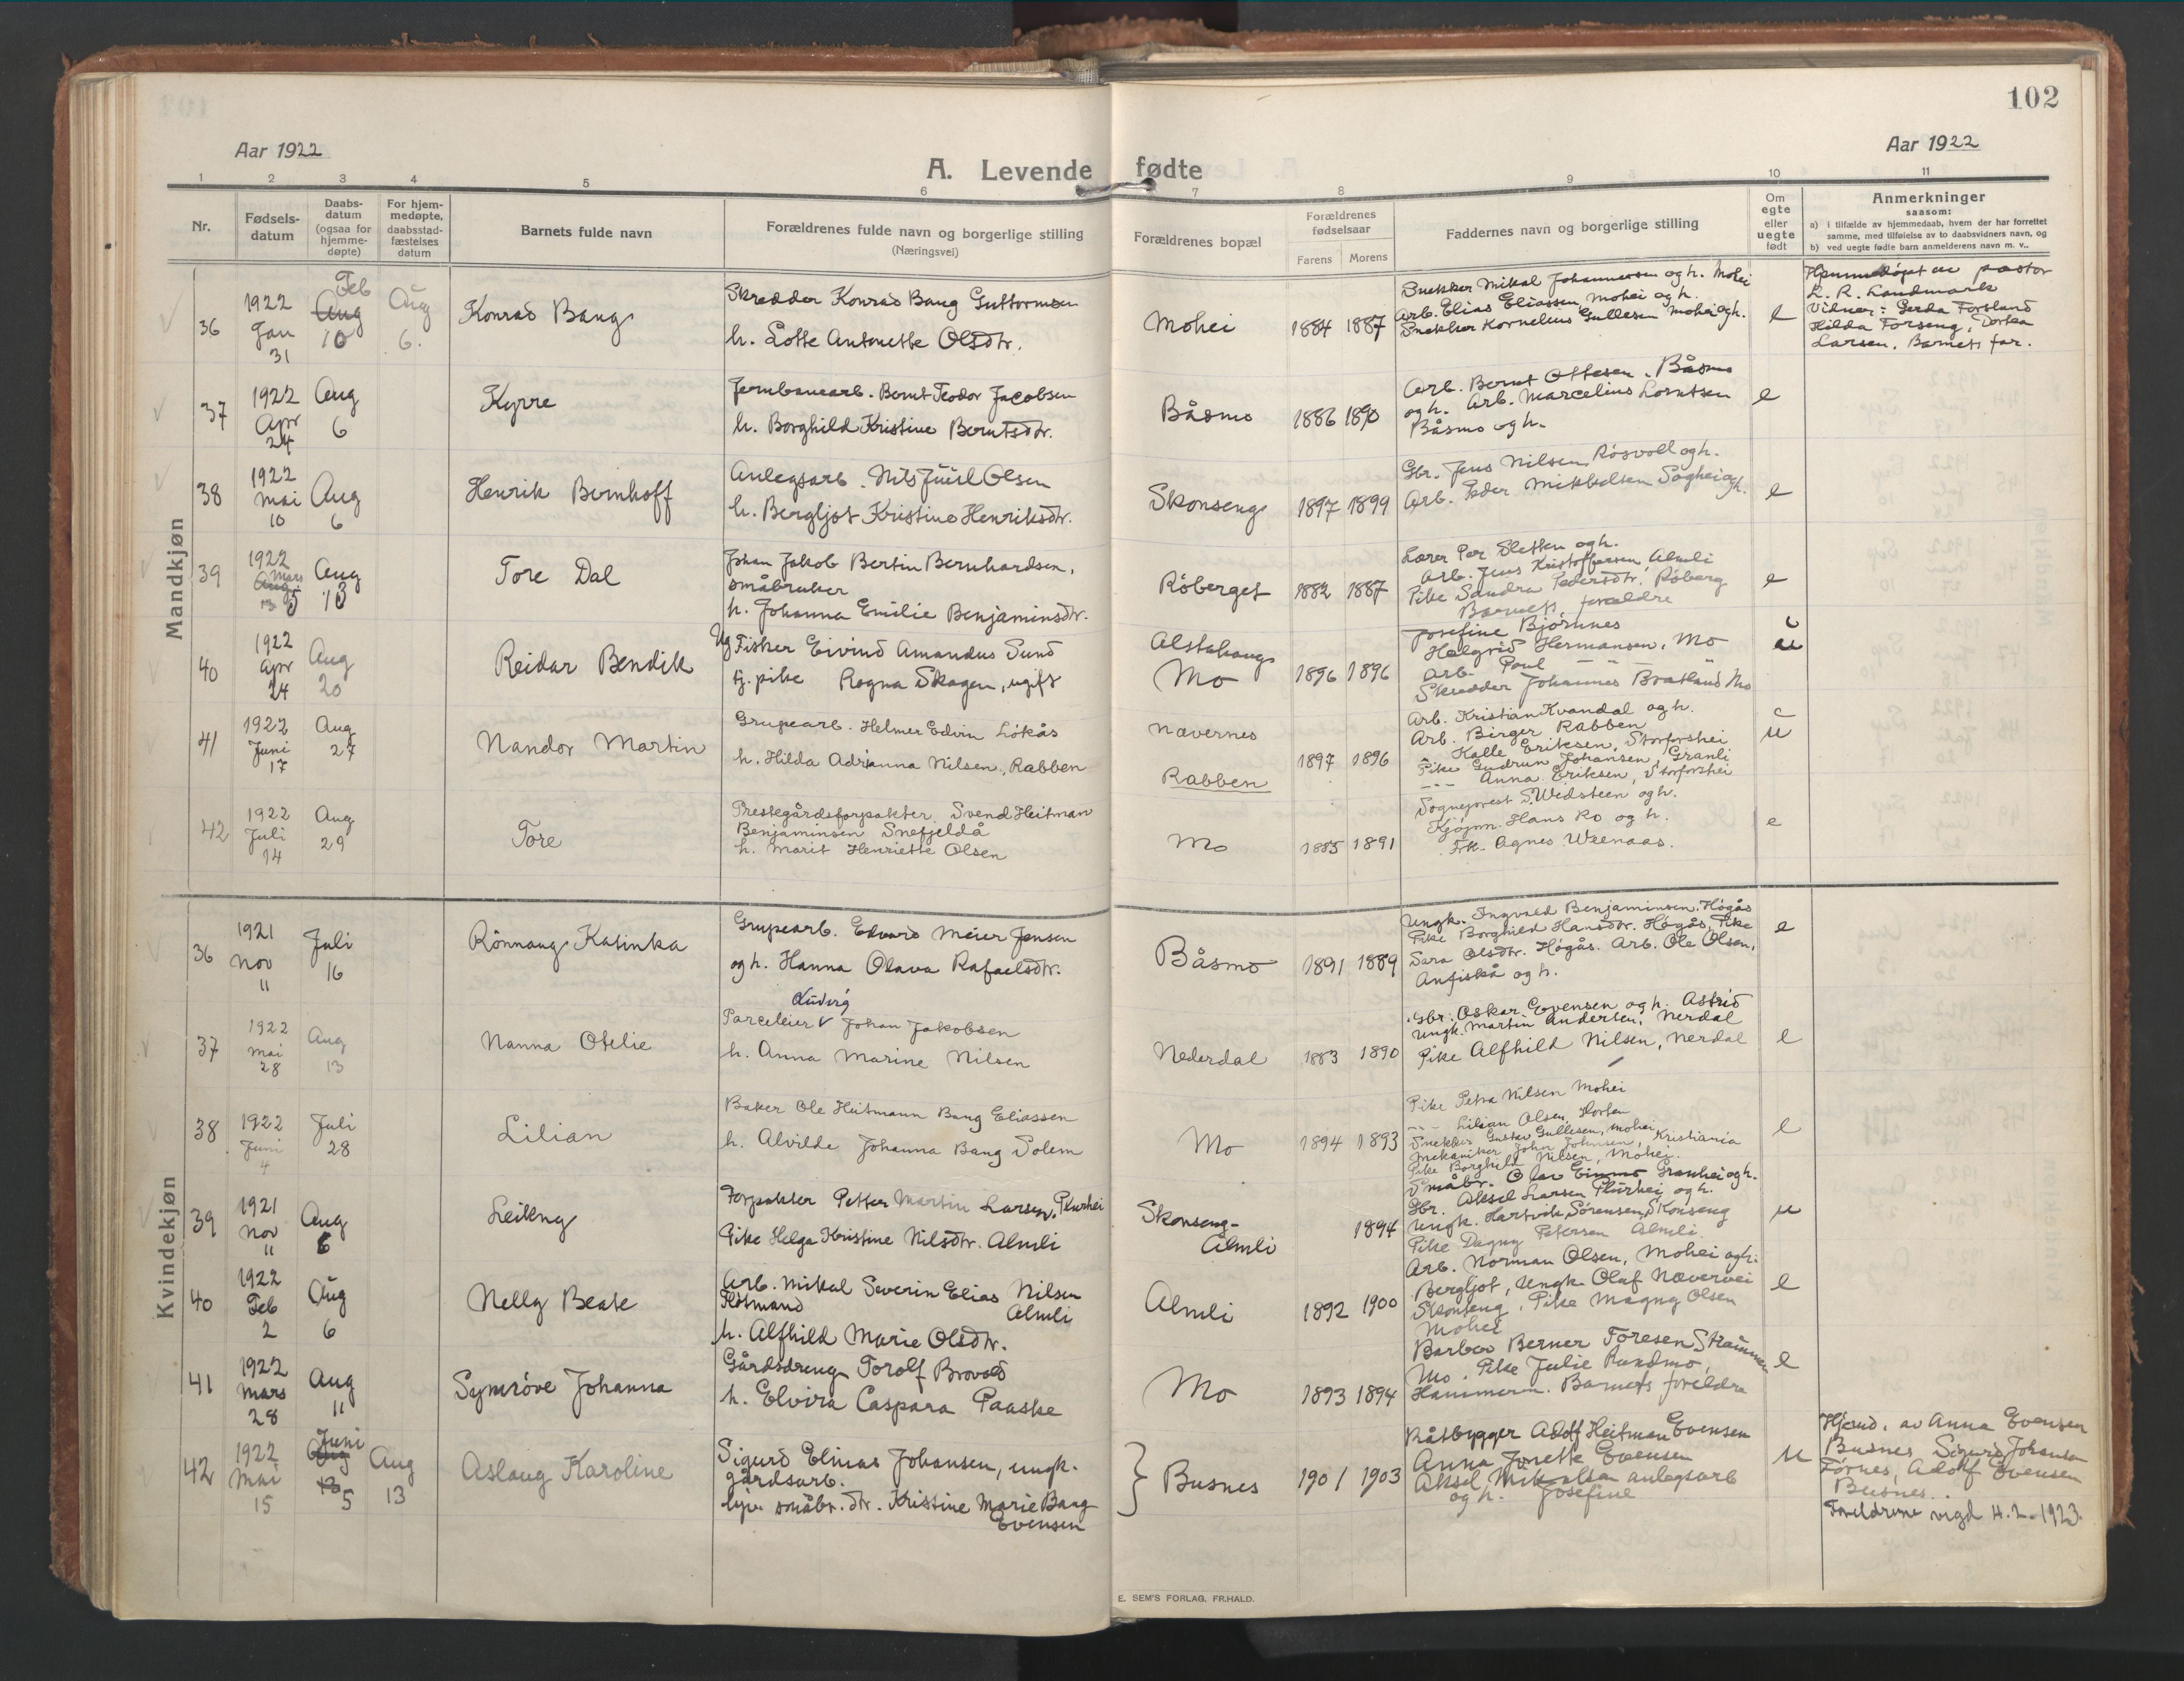 102
Aar 1922
Aar 1922
A. Levende fødte
1 2 3 4 5 6 7 8 9 10 11
Nr.
Fødsels-
datum
Daabs-
datum
(ogsaa for
hjemme-
døpte)
For hjem-
medøpte,
daabsstad-
fæstelses
datum
Barnets fulde navn
Forældrenes fulde navn og borgerlige stilling
(Næringsvei)
Forældrenes bopæl
Forældrenes
fødselsaar
Farens Morens
Faddernes navn og borgerlige stilling
Om
egte
eller
uegte
født
Anmerkninger
saasom:
a) i tilfælde av hjemmedaab, hvem der har forrettet
samme, med tilføielse av to daabsvidners navn, og
b) ved uegte fødte barn anmelderens navn m. v..
Mandkjøn
36
1922
Jan
31
Feb
Aug
10
Aug
6.
Konrad Bang
Skrædder Konrad Bang Guttormsen
h. Lotte Antonette Olsdtr.
Mohei
1884 1887
Snekker Mikal Johannesen og h. Mohei
Arb. Elias Eliassen, Mohei og h.
Snekker Kornelius Gullesen Mohei og h.
e
Hjemmedøpt av pastor
L. R. Landmark
Vidner: Gerda Forsland
Hilda Forseng, Dortea
Larsen. Barnets far.
37
1922
Apr
24
Aug
6
Kyrre
Jernbanearb. Bernt Teodor Jacobsen
h. Borghild Kristine Berntsdtr.
Båsmo
1886 1890
Arb. Bernt Ottesen, Båsmo
og h. Arb. Marcelius Lorntsen
Båsmo og h.
e
38
1922
Mai
10
Aug
6
Henrik Bernhoff
Anlegsarb. Nils Juul Olsen
h. Bergljot Kristine Henriksdtr.
Skonseng
1897 1899
Gbr. Jens Nilsen Røsvoll og h.
Arb. Peder Mikkelsen Sagheia og h.
e
39
1922
Mars
Aug
13 5
Aug
13
Tore Dal
Johan Jakob Bertin Bernhardsen,
småbruker
h. Johanna Emilie Benjaminsdtr.
Røberget
1882 1887
Lærer Per Sletten og h.
Arb. Jens Kristoffersen, Almli
Pike Sandra Pedersdtr. Røberg
Barnets forældre
e
40
1922
Apr
24
Aug
20
Reidar Bendik
Ug Fisker Eivind Amandus Sund
tj. pike Ragna Skagen, ugift
Alstahaug
Mo
1896 1896
Josefine Bjørnnes
Helgrid Hermansen, Mo
Arb. Poul — " — "
Skrædder Johannes Bratland Mo
41
1922
Juni
17
Aug
27
Nandor Martin
Grupearb. Helmer Edvin Løkås
h. Hilda Adrianna Nilsen, Rabben
Nævernes
Rabben
1897 1896
Arb. Kristian Kvandal og h.
Arb. Birger Rabben
Kalle Eriksen, Storforshei
Pike Gudrun Johansen, Granli
--- Anna Eriksen, Storforshei
u
42
1922
Juli
14
Aug
29
Tore
Prestegårdsforpakter Svend Heitman
Benjaminsen Snefjeldå
h. Marit Henriette Olsen
Mo
1885 1891
Sogneprest S. Wedsteen og h.
Kjøpm. Hans Ro og h.
Frk. Agnes Weenaas.
e
Kvindekjøn
36
1921
Nov
11
Juli
16
Rønnaug Katinka
Grupearb. Edvard Meier Jensen
og h. Hanna Olava Rafaelsdtr.
Båsmo
1891 1889
Ungk. Ingvald Benjaminsen, Høgås
Pike Borghild Hansdtr. Høgås, Pike
Sara Olsdtr. Høgås. Arb. Ole Olsen,
Anfiskå og h.
e
37
1922
Mai
28
Aug
13
Nanna Otelie
Ludvig
Parceleier v Johan Jakobsen
h. Anna Marine Nilsen
Nederdal
1883 1890
Gbr. Oskar Evensen og h. Astrid
Ungk. Martin Andersen, Nerdal
Pike Alfhild Nilsen, Nerdal
e
38
1922
Juni
4
Juli
28
Lilian
Baker Ole Heitmann Bang Eliassen
h. Alvilde Johanna Bang Solem
Mo
1894 1893
Pike Petra Nilsen Mohei
--- Lilian Olsen, Horten
Snekker Gustav Gullesen, Mohei
Mekaniker John Johnsen, Kristiania
Pike Borghild Nilsen, Mohei.
e
39
1921
Nov
11
Aug
6
Leikny
Forpakter Petter Martin Larsen, Plurhei
Pike Helga Kristine Nilsdtr. Almli
Skonseng-
Almli
1894
Småbr. Olav Einmo Granhei og h.
Gbr. Aksel Larsen Plurhei og h.
Ungk. Hartvik Sørensen, Skonseng
Pike Dagny Petersen Almli.
u
40
1922
Feb
2
Aug
6
Nelly Beate
Arb. Mikal Severin Elias Nilsen
Fløtmand Almli
h. Alfhild Marie Olsdtr.
Almli
1892 1900
Arb. Norman Olsen, Mohei og h.
Bergljot, Ungk. Olaf Nævervei
Skonseng, Pike Magny Olsen
Mohei
e
41
1922
Mars
28
Aug
11
Symrøve Johanna
Gårdsdreng Torolf Brovold
h. Elvira Caspara Paaske
Mo
1893 1894
Barber Berner Toresen Strømmen
Mo. Pike Julie Rundmo,
Hammeren. Barnets foreldre
e
42
1922
Mai
15
Juni
Aug
13
5
Aug
13
Aslaug Karoline
Sigurd Elinas Johansen, ungk.
gårdsarb.
hjv. småbr. dtr. Kristine Marie Bang
Evensen
} Busnes
1901 1903
Båtbygger Adolf Heitman Evensen
Anna Jonette Evensen
Aksel Mikalsen anlegsarb
og h. Josefine
u
Hjemd. av Anna Evensen
Busnes, Sigurd Johansen
Førnes, Adolf Evensen
Busnes.
Foreldrene vigd 4.2.-1923.
E. SEM'S FORLAG, FR.HALD.